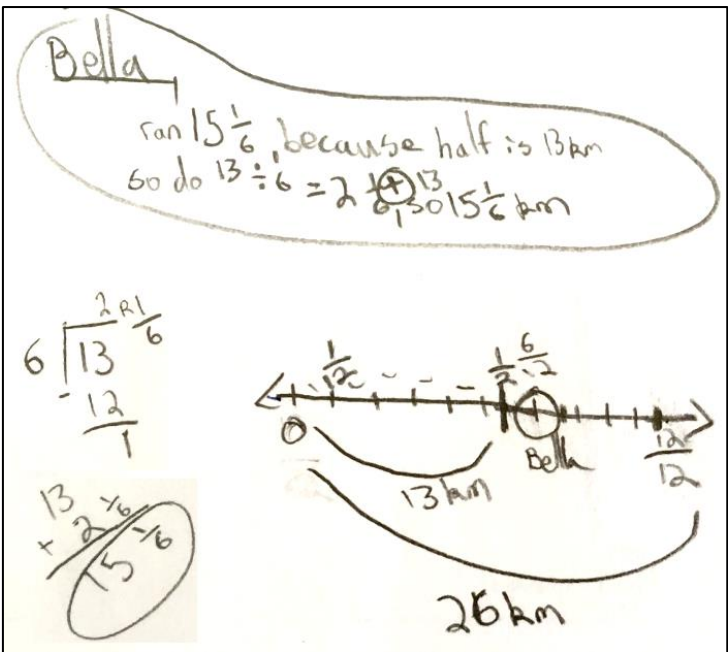 Bella
ran 15 1/6, because half is 13 km
so do 13 ÷ 6 = 2 1/6 + 13, so 15 1/6 km
2 R 1/6
6 13
- 12
1
13
+ 2 1/6
15 1/6
1/12
1/2 6/12
0
Bella
12/12
13 km
26 km